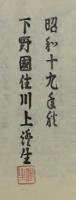 昭和十九年秋
下野國住川上澄生